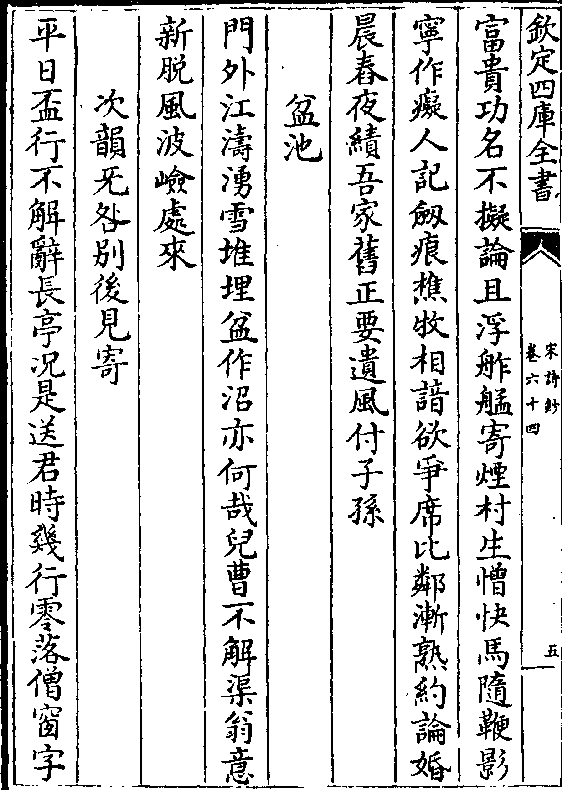 欽定四庫全書
宋詩鈔
卷六十四
五
富貴功名不擬論且浮舴艋寄煙村生憎快馬隨鞭影
寧作癡人記劔痕樵牧相諳欲爭席比鄰漸熟約論婚
晨舂夜績吾家舊正要遺風付子孫
盆池
門外江濤湧雪堆埋盆作沼亦何哉兒曹不解渠翁意
新脫風波嶮處來
次韻无咎別後見寄
平日盃行不解辭長亭况是送君時幾行零落僧窗字